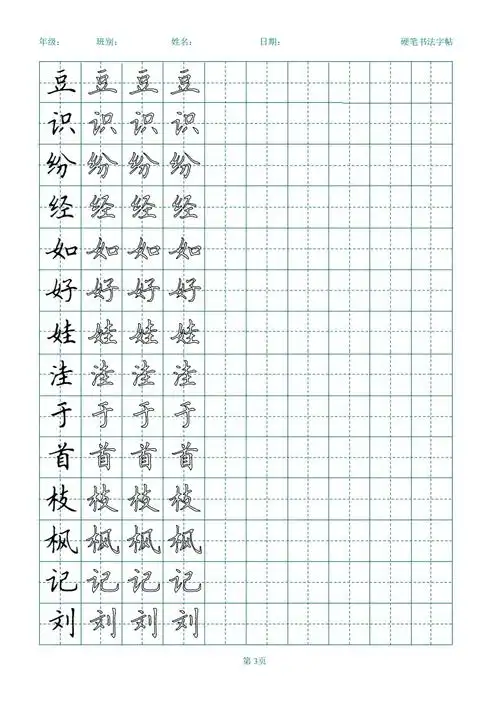 年级： 班别： 姓名： 日期： 硬笔书法字帖
豆 豆 豆 豆
识 识 识 识
纷 纷 纷 纷
经 经 经 经
如 如 如 如
好 好 好 好
娃 娃 娃 娃
洼 洼 洼 洼
于 于 于 于
首 首 首 首
枝 枝 枝 枝
枫 枫 枫 枫
记 记 记 记
刘 刘 刘 刘
第 3页